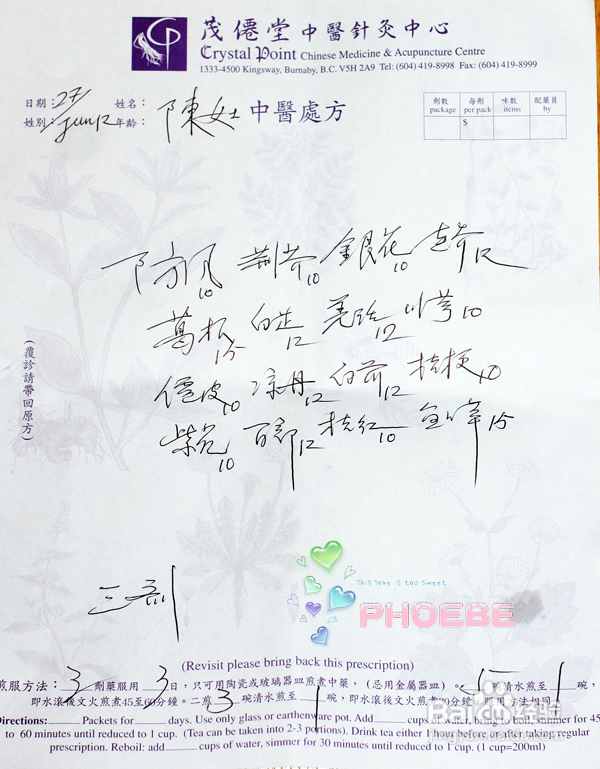 茂僊堂中醫針灸中心
Crystal Point Chinese Medicine & Acupuncture Centre
1333-4500 Kingsway, Burnaby, B.C. V5H 2A9 Tel: (604) 419-8998 Fax: (604) 419-8999
日期: 27 姓名: 陳女士
姓別: Jun 12 年齡:
中醫處方
劑數 每劑 味數 配藥員
package per pack items by
$
防风10 荆芥10 銀花10
葛根15 白芷12 羌活12 川芎10
僊皮10 凉丹12 白前12 桔梗10
紫菀10 百部12 桔红10 15
(覆診請帶回原方)
三剂
This love is too sweet
PHOEBE
(Revisit please bring back this prescription)
煎服方法: 3 劑藥服用 3 日,只可用陶瓷或玻璃器皿煎煮中藥,(忌用金屬器皿)。 5 清水煎至 1 碗,
即水滾後文火煎煮45至60分鐘。二煎 3 碗清水煎至 1 碗,即水滾後文火煎煮30分鐘,服用方法相同。
Directions: Packets for days. Use only glass or earthenware pot. Add cups of water, bring to boil, simmer for 45
to 60 minutes until reduced to 1 cup. (Tea can be taken into 2-3 portions). Drink tea either 1 hour before or after taking regular
prescription. Reboil: add cups of water, simmer for 30 minutes until reduced to 1 cup. (1 cup=200ml)
Baidu经验